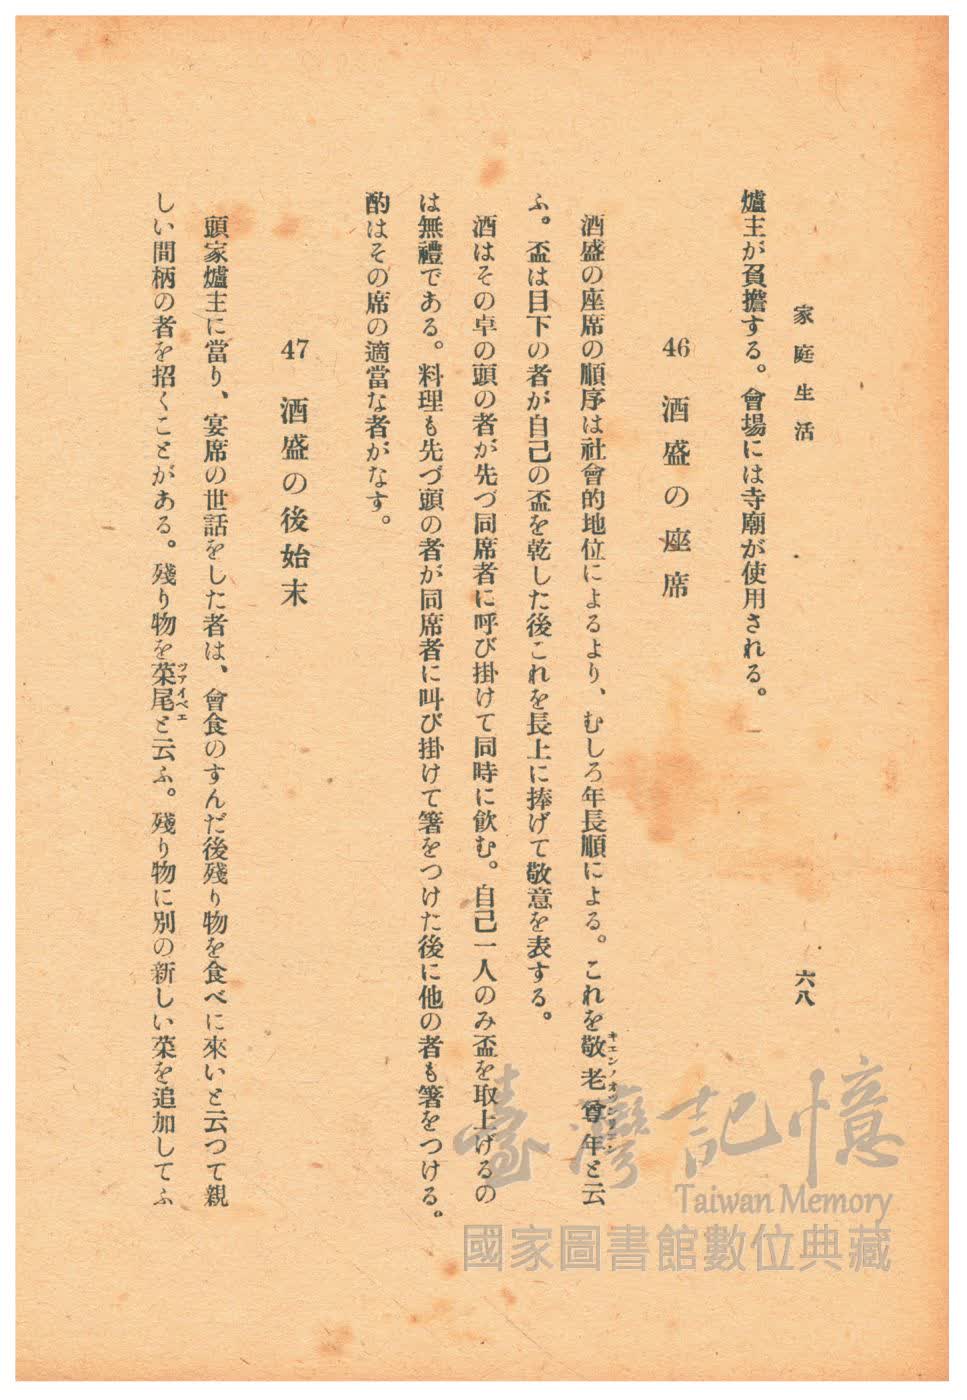 家庭生活
六八
爐主が負擔する。會場には寺廟が使用される。
46 酒盛の座席
酒盛の座席の順序は社會的地位によるより、むしろ年長順による。これを敬老尊年と云
ふ。盃は目下の者が自己の盃を乾した後これを長上に捧げて敬意を表する。
酒はその卓の頭の者が先づ同席者に呼び掛けて同時に飮む。自己一人のみ盃を取上げるの
は無禮である。料理も先づ頭の者が同席者に叫び掛けて箸をつけた後に他の者も箸をつける。
酌はその席の適當な者がなす。
47 酒盛の後始末
頭家爐主に當り、宴席の世話をした者は、會食のすんだ後殘り物を食べに來いと云つて親
しい間柄の者を招くことがある。殘り物を菜尾と云ふ。殘り物に別の新しい菜を追加してふ
ツァイベェ
臺灣記憶
Taiwan Memory
國家圖書館數位典藏